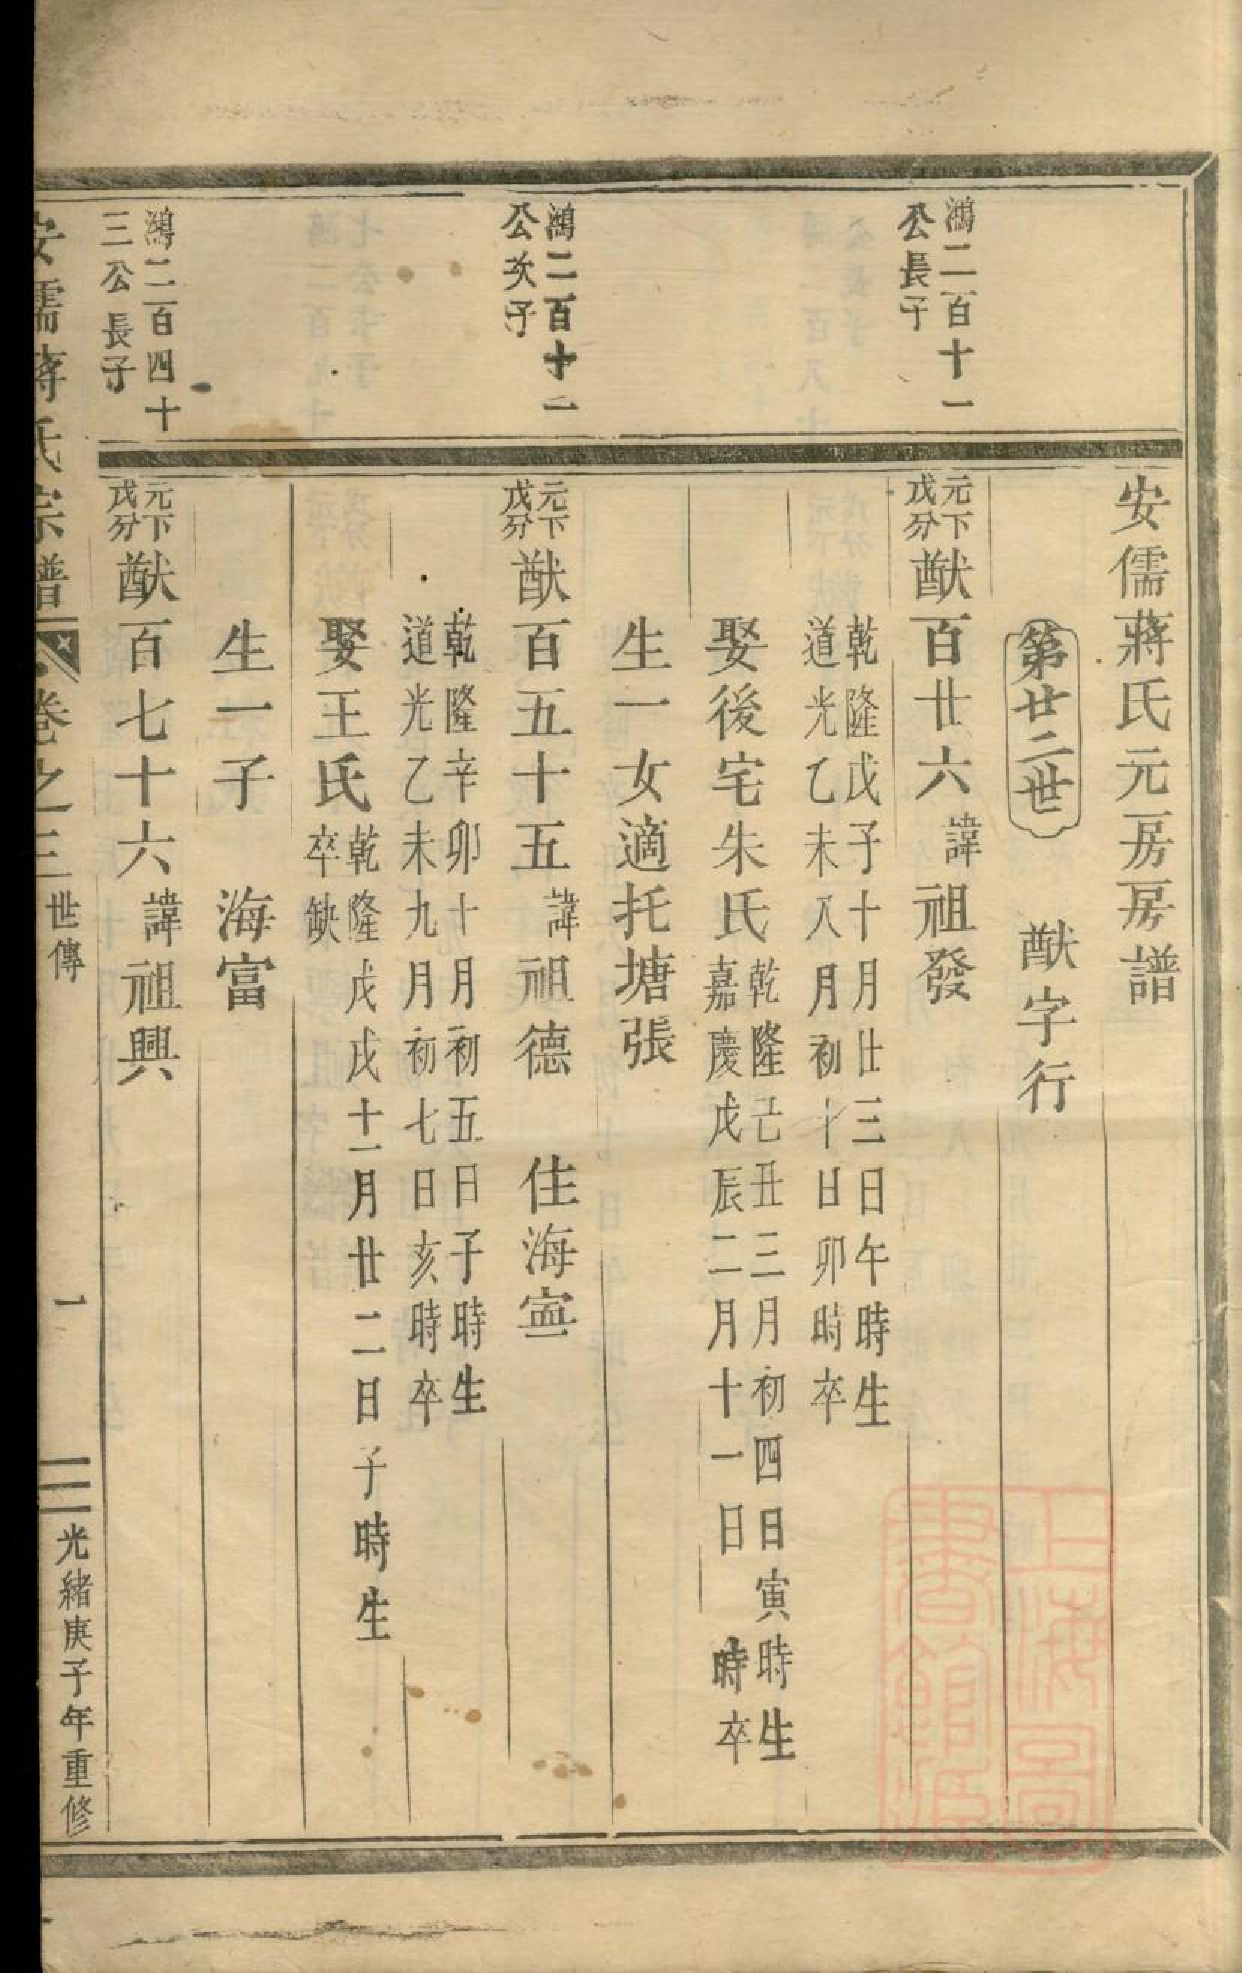 安儒蔣氏元房房譜
第廿二世 猷字行
鴻二百十一
公長子
元下
戊分
猷百廿六諱祖發
乾隆戊子十月廿三日午時生
道光乙未八月初十日卯時卒
娶後宅朱氏
乾隆己丑三月初四日寅時生
嘉慶戊辰二月十一日 時卒
生一女適托塘張
鴻二百十一
公次子
元下
戊分
猷百五十五諱祖德 住海寧
乾隆辛卯十月初五日子時生
道光乙未九月初七日亥時卒
娶王氏
乾隆戊戌十二月廿二日子時生
卒缺
生一子 海富
鴻二百四十
三公長子
元下
戊分
猷百七十六諱祖興
安儒蔣氏宗譜 卷之三 世傳 一 光緒庚子年重修
上海圖
書館藏